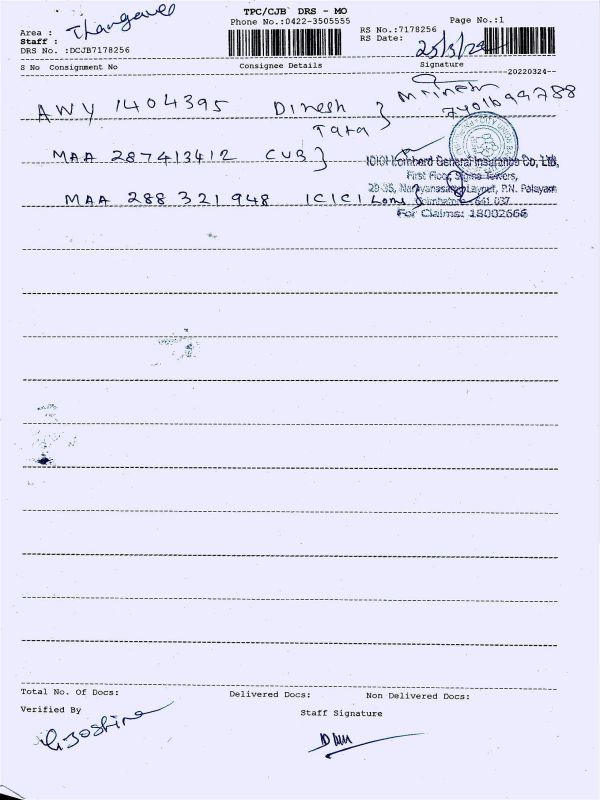 TPC/CJB DRS - MO
Phone No.:0422-3505555
Page No.:1
Area : Thangavel
Staff :
DRS No. :DCJB7178256
RS No.:7178256
RS Date: 25/3/22
S No Consignment No Consignee Details Signature
20220324
AWY 1404395 Dinesh
Tara
MAA 287413412 CUB
MAA 288 321 948 ICICI Lom
ICICI Lombard General Insurance Co, Ltd,
First Floor, Towers,
29-35, Narayanasamy Layout, P.N. Palayam
Coimbatore - 641 037
For Claims: 18002666
Total No. Of Docs: Delivered Docs: Non Delivered Docs:
Verified By
Staff Signature